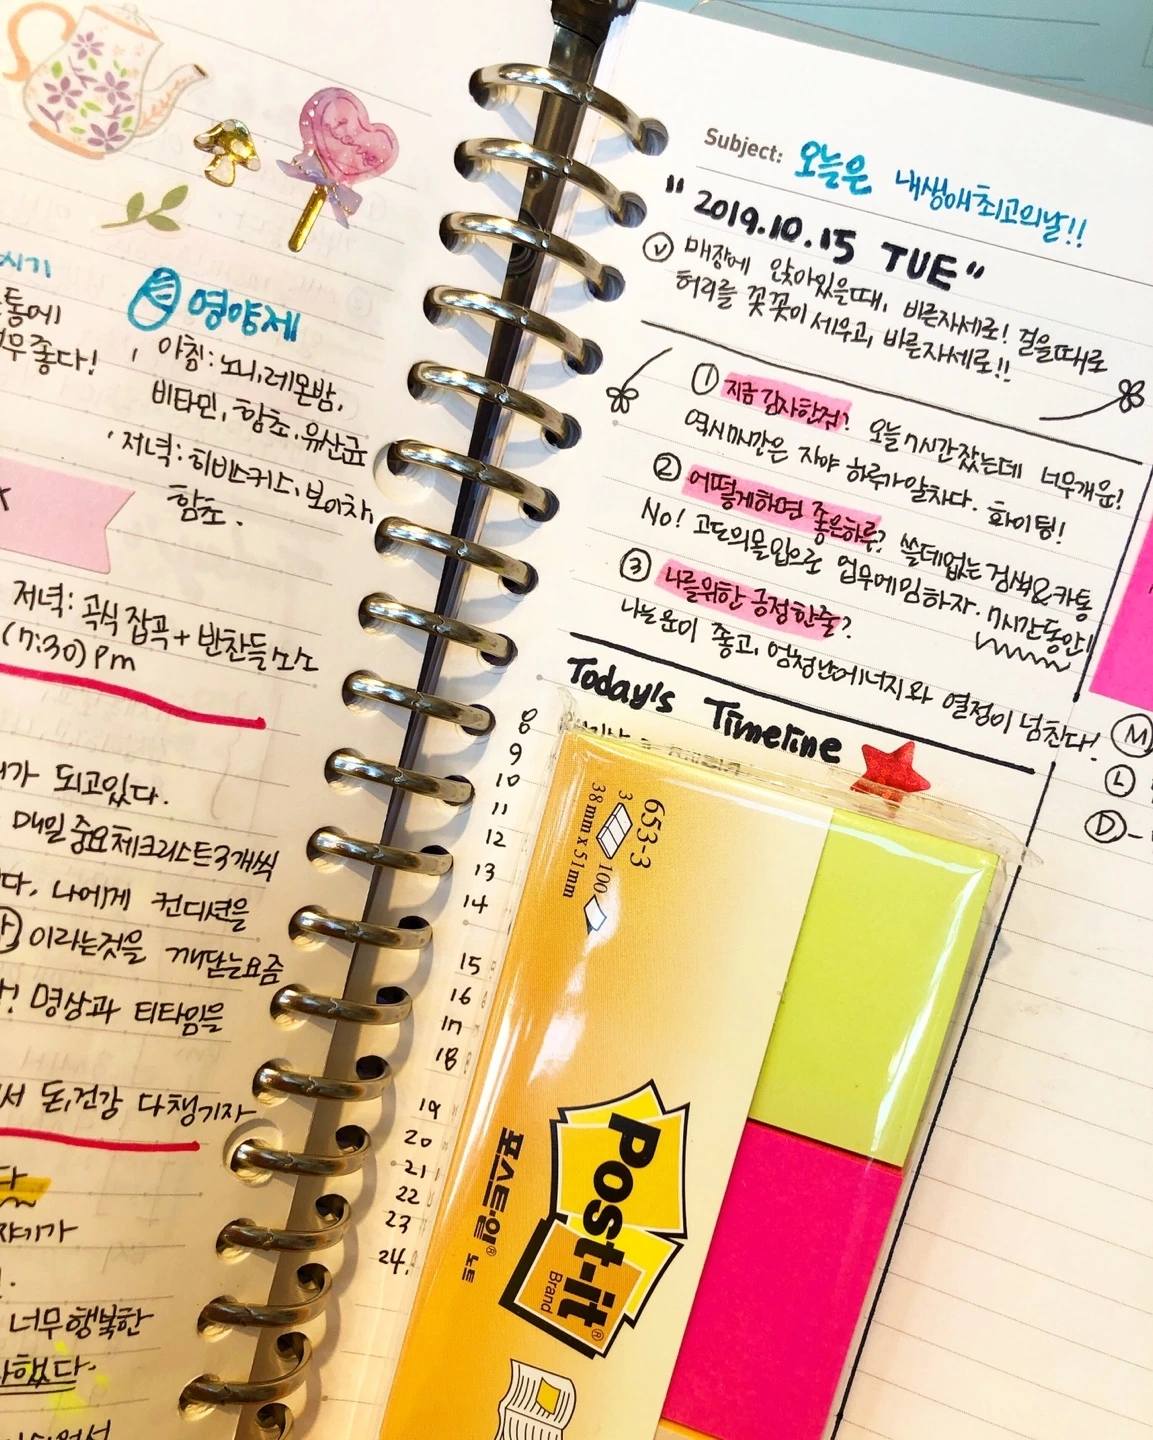 Love
시기
통에
너무 좋다!
영양제
아침: 노니, 레몬밤,
비타민, 함초, 유산균
저녁: 히비스커스, 보이차,
함초.
저녁: 곡식 잡곡 + 반찬들 소소
(7:30) pm
가 되고있다.
매일 중요체크리스트 3개씩
다. 나에게 컨디션을
이라는것을 깨닫는요즘
! 명상과 티타임을
서 돈, 건강 다챙기자
다
너무행복한
했다.
Subject: 오늘은 내생애최고의날!!
"2019.10.15 TUE"
ⓥ 매장에 앉아있을때, 바른자세로! 걸을때로
허리를 꼿꼿이 세우고, 바른자세로!!
① 지금 감사한점? 오늘 7시간 잤는데 너무개운!
역시 7시간은 자야 하루가알차다. 화이팅!
② 어떻게하면 좋은하루? 쓸데없는 검색&카톡
No! 고도의몰입으로 업무에임하자. 7시간동안!
③ 나를위한 긍정한줄?
나는운이 좋고, 엄청난에너지와 열정이 넘친다!
Today's Timeline
8
9
10
11
12
13
14
15
16
17
18
19
20
21
22
23
24.
Ⓜ
Ⓛ
Ⓓ-
653-3
3 100
38 mm x 51 mm
Post-it®
Brand
포스트-잇® 노트